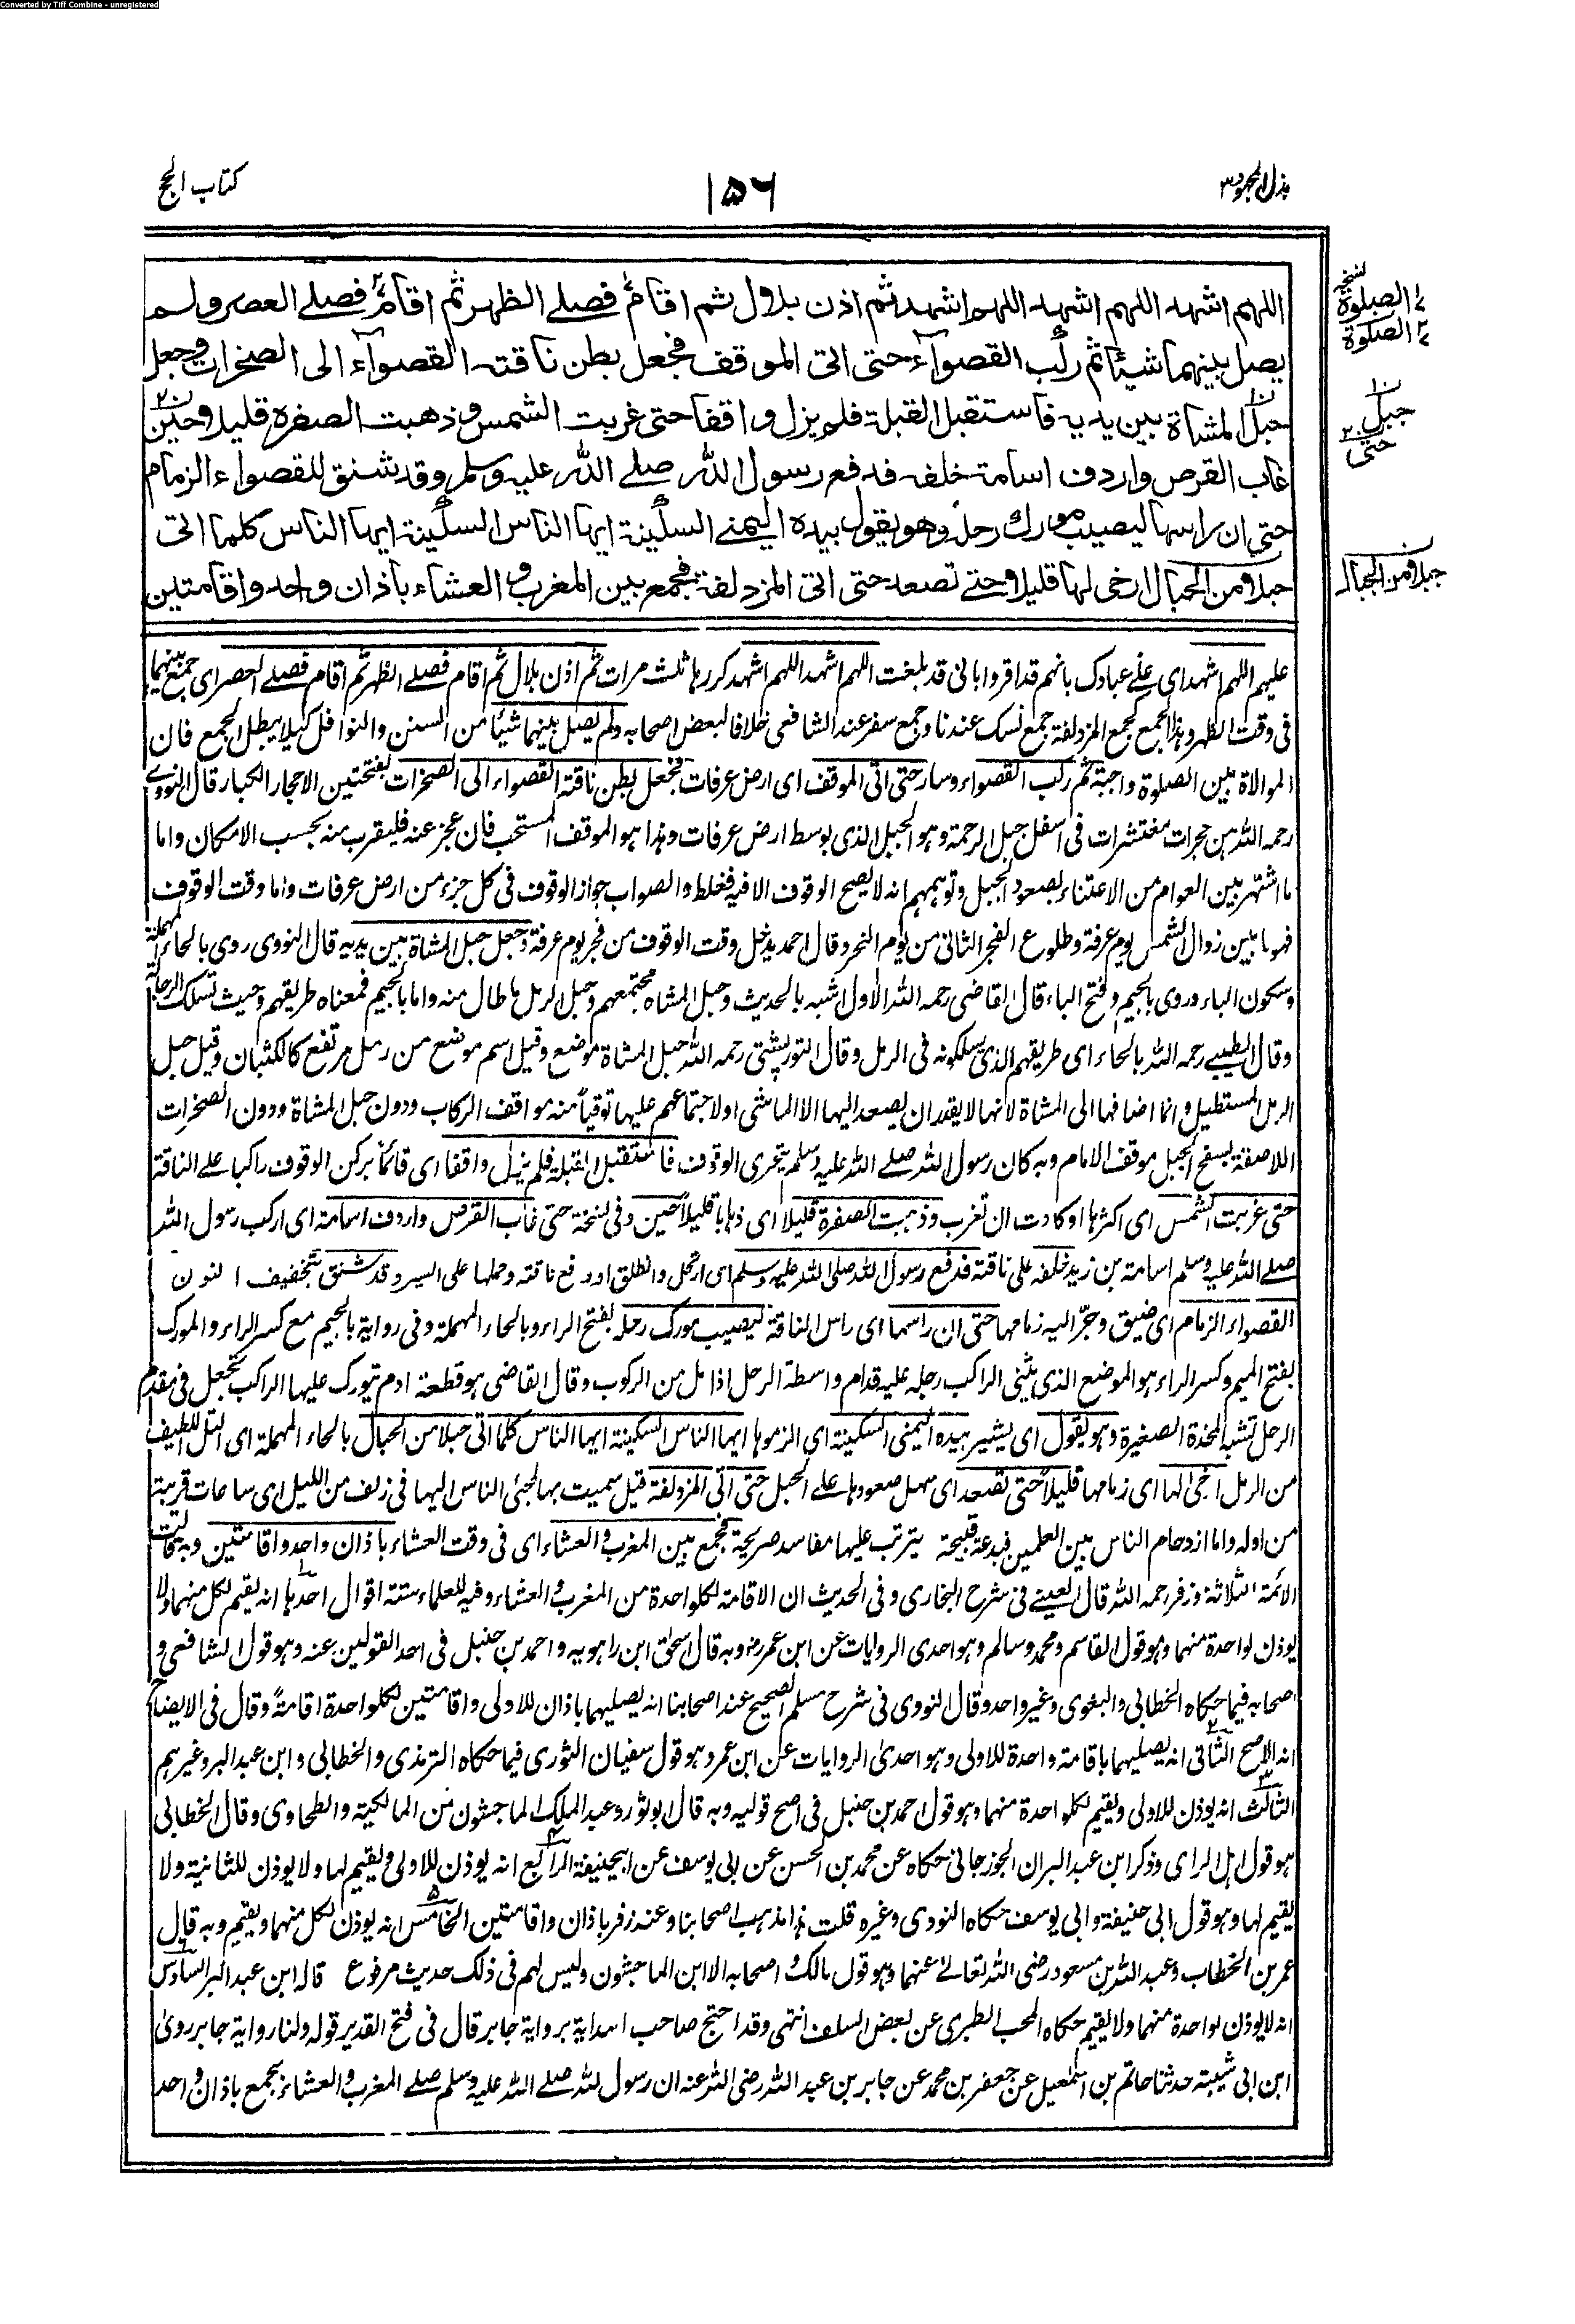 Converted by Tiff Combine - unregistered
بذل المجهود ٣
١٥٦
كتاب الحج
اللهم اشهد اللهم اشهد اللهم اشهد ثم اذن بلال ثم اقام فصلے الظهر ثم اقام فصلے العصر ولم
يصل بينهما شيئا ثم ركب القصواء حتى اتى الموقف فجعل بطن ناقته القصواء الى الصخرات وجعل
حبل المشاة بين يديه فاستقبل القبلة فلم يزل واقفا حتى غربت الشمس وذهبت الصفرة قليلا وحين
غاب القرص واردف اسامة خلفه فدفع رسول الله صلے الله عليه وسلم وقد شنق للقصواء الزمام
حتى ان راسها ليصيب مورك رحله وهو يقول بيده اليمنے السكينة ايها الناس السكينة ايها الناس كلما اتى
حبلا من الحبال ارخى لها قليلا حتے تصعد حتى اتى المزدلفة فجمع بين المغرب والعشاء باذان واحد واقامتين
نسخة
١ الصلوة
٢ الصلوة
ن ١
جبل
ن ٢
حتى
ن
جبلا من الجبال
عليهم اللهم اشهد اى علے عبادك بانهم قد اقروا بانى قد بلغت اللهم اشهد اللهم اشهد كررها ثلث مرات ثم اذن بلال ثم اقام فصلے الظهر ثم اقام فصلے العصر اى جمع بينهما
فى وقت الظهر وهذا الجمع كجمع المزدلفة جمع نسك عندنا وجمع سفر عند الشافعى خلافا لبعض اصحابه ولم يصل بينهما شيئا من السنن والنوافل كيلا يبطل الجمع فان
الموالاة بين الصلوة واجبة ثم ركب القصواء وسار حتى اتى الموقف اى ارض عرفات فجعل بطن ناقته القصواء الى الصخرات بفتحتين الاحجار الكبار قال النووے
رحمه الله هن حجرات مفتشرات فى اسفل جبل الرحمة وهو الجبل الذى بوسط ارض عرفات وهذا هو الموقف المستحب فان عجز عنه فليقرب منه بحسب الامكان واما
ما اشتهر بين العوام من الاعتناء بصعود الجبل وتوهمهم انه لا يصح الوقوف الا فيه فغلط والصواب جواز الوقوف فى كل جزء من ارض عرفات واما وقت الوقوف
فهو ما بين زوال الشمس يوم عرفة وطلوع الفجر الثانى من يوم النحر وقال احمد يدخل وقت الوقوف من فجر يوم عرفة وجعل حبل المشاة بين يديه قال النووى روى بالحاء المهملة
وسكون الباء وروى بالجيم وفتح الباء قال القاضى رحمه الله الاول اشبه بالحديث وحبل المشاه مجتمعهم وحبل الرمل ما طال منه واما بالجيم فمعناه طريقهم وحيث تسلك الرجالة
وقال الطيبے رحمه الله بالحاء اى طريقهم الذى يسلكونه فى الرمل وقال التوربشتى رحمه الله حبل المشاة موضع وقيل اسم موضع من رمل مرتفع كالكثبان وقيل حبل
الرمل المستطيل وانما اضافها الى المشاة لانها لا يقدر ان يصعد اليها الا الماشى اولاجتماعهم عليها توقياً منه مواقف الركاب ودون حبل المشاة ودون الصخرات
اللاصفة بسفح الجبل موقف الامام وبه كان رسول الله صلے الله عليه وسلم يتحرى الوقوف فاستقبل القبلة فلم يزل واقفا اى قائما بركن الوقوف راكبا علے الناقة
حتى غربت الشمس اى اكثرها او كادت ان تغرب وذهبت الصفرة قليلا اى ذهابا قليلا حين وفى نسخة حتى غاب القرص واردف اسامة اى اركب رسول الله
صلے الله عليه وسلم اسامة بن زيد خلفه على ناقته فدفع رسول الله صلى الله عليه وسلم اى ارتحل وانطلق او دفع ناقته وحملها على السير وقد شنق بتخفيف النون
القصواء الزمام اى ضيق وجرّ اليه زمامها حتى ان راسها اى راس الناقة ليصيب مورك رحله بفتح الراء وبالحاء المهملة وفى رواية بالجيم مع كسر الراء والمورك
بفتح الميم وكسر الراء هو الموضع الذى يثنى الراكب رجله عليه قدام واسطة الرحل اذا مل من الركوب وقال القاضى هو قطعة ادم يتورك عليها الراكب تجعل فى مقدم
الرحل تشبه المخدة الصغيرة وهو يقول اى يشير بيده اليمنى السكينة اى الزموها ايها الناس السكينة ايها الناس كلما اتى حبلا من الحبال بالحاء المهملة اى التل اللطيف
من الرمل ارخى لها اى زمامها قليلاً حتى تصعد اى سهل صعودها علے الحبل حتى اتى المزدلفة قيل سميت بها لمجئ الناس اليها فى زلف من الليل اى ساعات قريبة
من اوله واما ازدحام الناس بين العلمين فبدعة قبيحة يترتب عليها مفاسد صريحة فجمع بين المغرب والعشاء اى فى وقت العشاء باذان واحد واقامتين وبه قالت
الائمة الثلاثة وزفر رحمه الله قال العينے فى شرح البخارى وفى الحديث ان الاقامة لكلواحدة من المغرب والعشاء وفيه للعلماء ستة اقوال احدها انه يقيم لكل منهما ولا
يوذن لواحدة منهما وهو قول القاسم ومحمد وسالم وهو احدى الروايات عن ابن عمر رض وبه قال اسحق ابن راهويه واحمد بن حنبل فى احد القولين عنه وهو قول الشافعى و
اصحابه فيما حكاه الخطابى والبغوى وغير واحد وقال النووى فى شرح مسلم الصحيح عند اصحابنا انه يصليهما باذان للاولى واقامتين لكلواحدة اقامةً وقال فى الايضاح
انه الاصح الثانى انه يصليهما باقامة واحدة للاولى وهو احدىٰ الروايات عن ابن عمر وهو قول سفيان الثورى فيما حكاه الترمذى والخطابى وابن عبد البر وغيرهم
الثالث انه يوذن للاولى ويقيم لكلواحدة منهما وهو قول احمد بن حنبل فى اصح قوليه وبه قال ابو ثور وعبد الملك الماجشون من المالكية والطحاوى وقال الخطابى
هو قول اهل الراى وذكر ابن عبد البر ان الجوزجانى حكاه عن محمد بن الحسن عن ابى يوسف عن ابيحنيفة الرابع انه يوذن للاولى ويقيم لها ولا يوذن للثانية ولا
يقيم لها وهو قول ابى حنيفة وابى يوسف حكاه النووى وغيره قلت هذا مذهب اصحابنا وعند زفر باذان واقامتين الخامس انه يوذن لكل منهما ويقيم وبه قال
عمر بن الخطاب وعبد الله بن مسعود رضى الله تعالےٰ عنهما وهو قول مالك و اصحابه الا ابن الماجشون وليس لهم فى ذلك حديث مرفوع قاله ابن عبد البر السادس
انه لا يوذن لواحدة منهما ولا يقيم حكاه المحب الطبرى عن بعض السلف انتهى وقد احتج صاحب الهداية برواية جابر قال فى فتح القدير قوله ولنا رواية جابر روىٰ
ابن ابى شيبة حدثنا حاتم بن اسمٰعيل عن جعفر بن محمد عن جابر بن عبد الله رضى الله عنه ان رسول لله صلے الله عليه وسلم صلے المغرب والعشاء بجمع باذان واحد